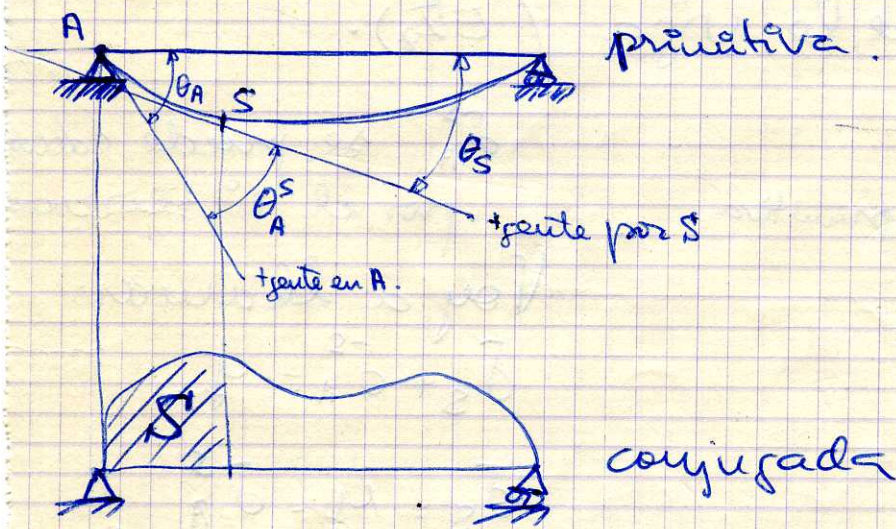 A
primitiva.
θA
S
θS
θAS
tgente por S
tgente en A.
S
conjugada